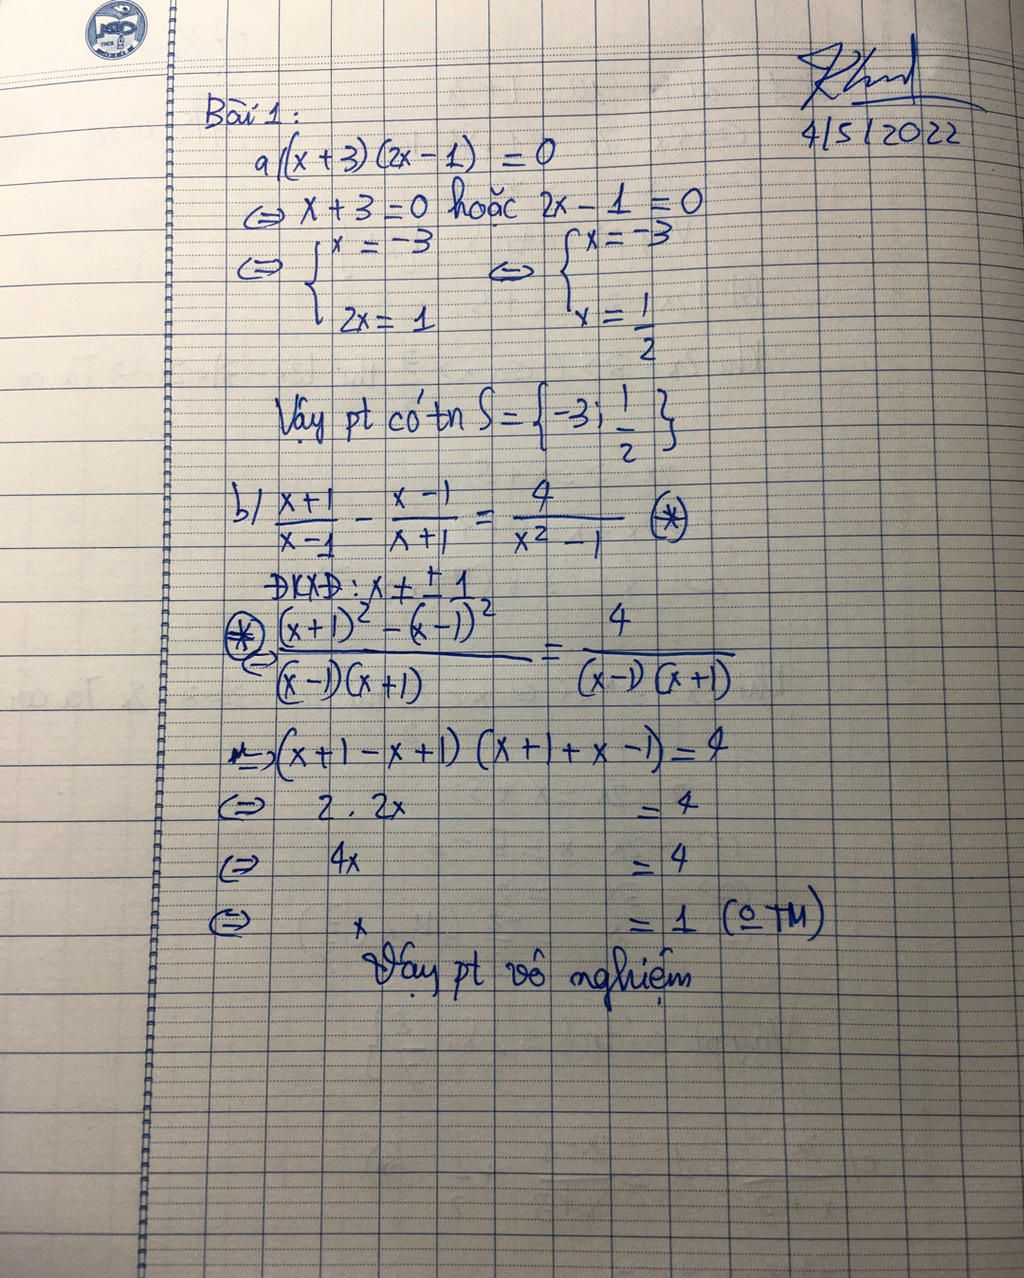 Bài 1:
4/5/2022
a/ (x+3)(2x-1) = 0
⇔ x+3=0 hoặc 2x-1=0
⇔ { x = -3 ⇔ { x = -3
2x = 1 x = 1/2
Vậy pt có tn S = {-3; 1/2}
b/ (x+1)/(x-1) - (x-1)/(x+1) = 4/(x²-1) (*)
ĐKXĐ: x ≠ ±1
(*) ⇔ ((x+1)² - (x-1)²)/((x-1)(x+1)) = 4/((x-1)(x+1))
⇒ (x+1-x+1)(x+1+x-1) = 4
⇔ 2 . 2x = 4
⇔ 4x = 4
⇔ x = 1 (o TM)
Vậy pt vô nghiệm